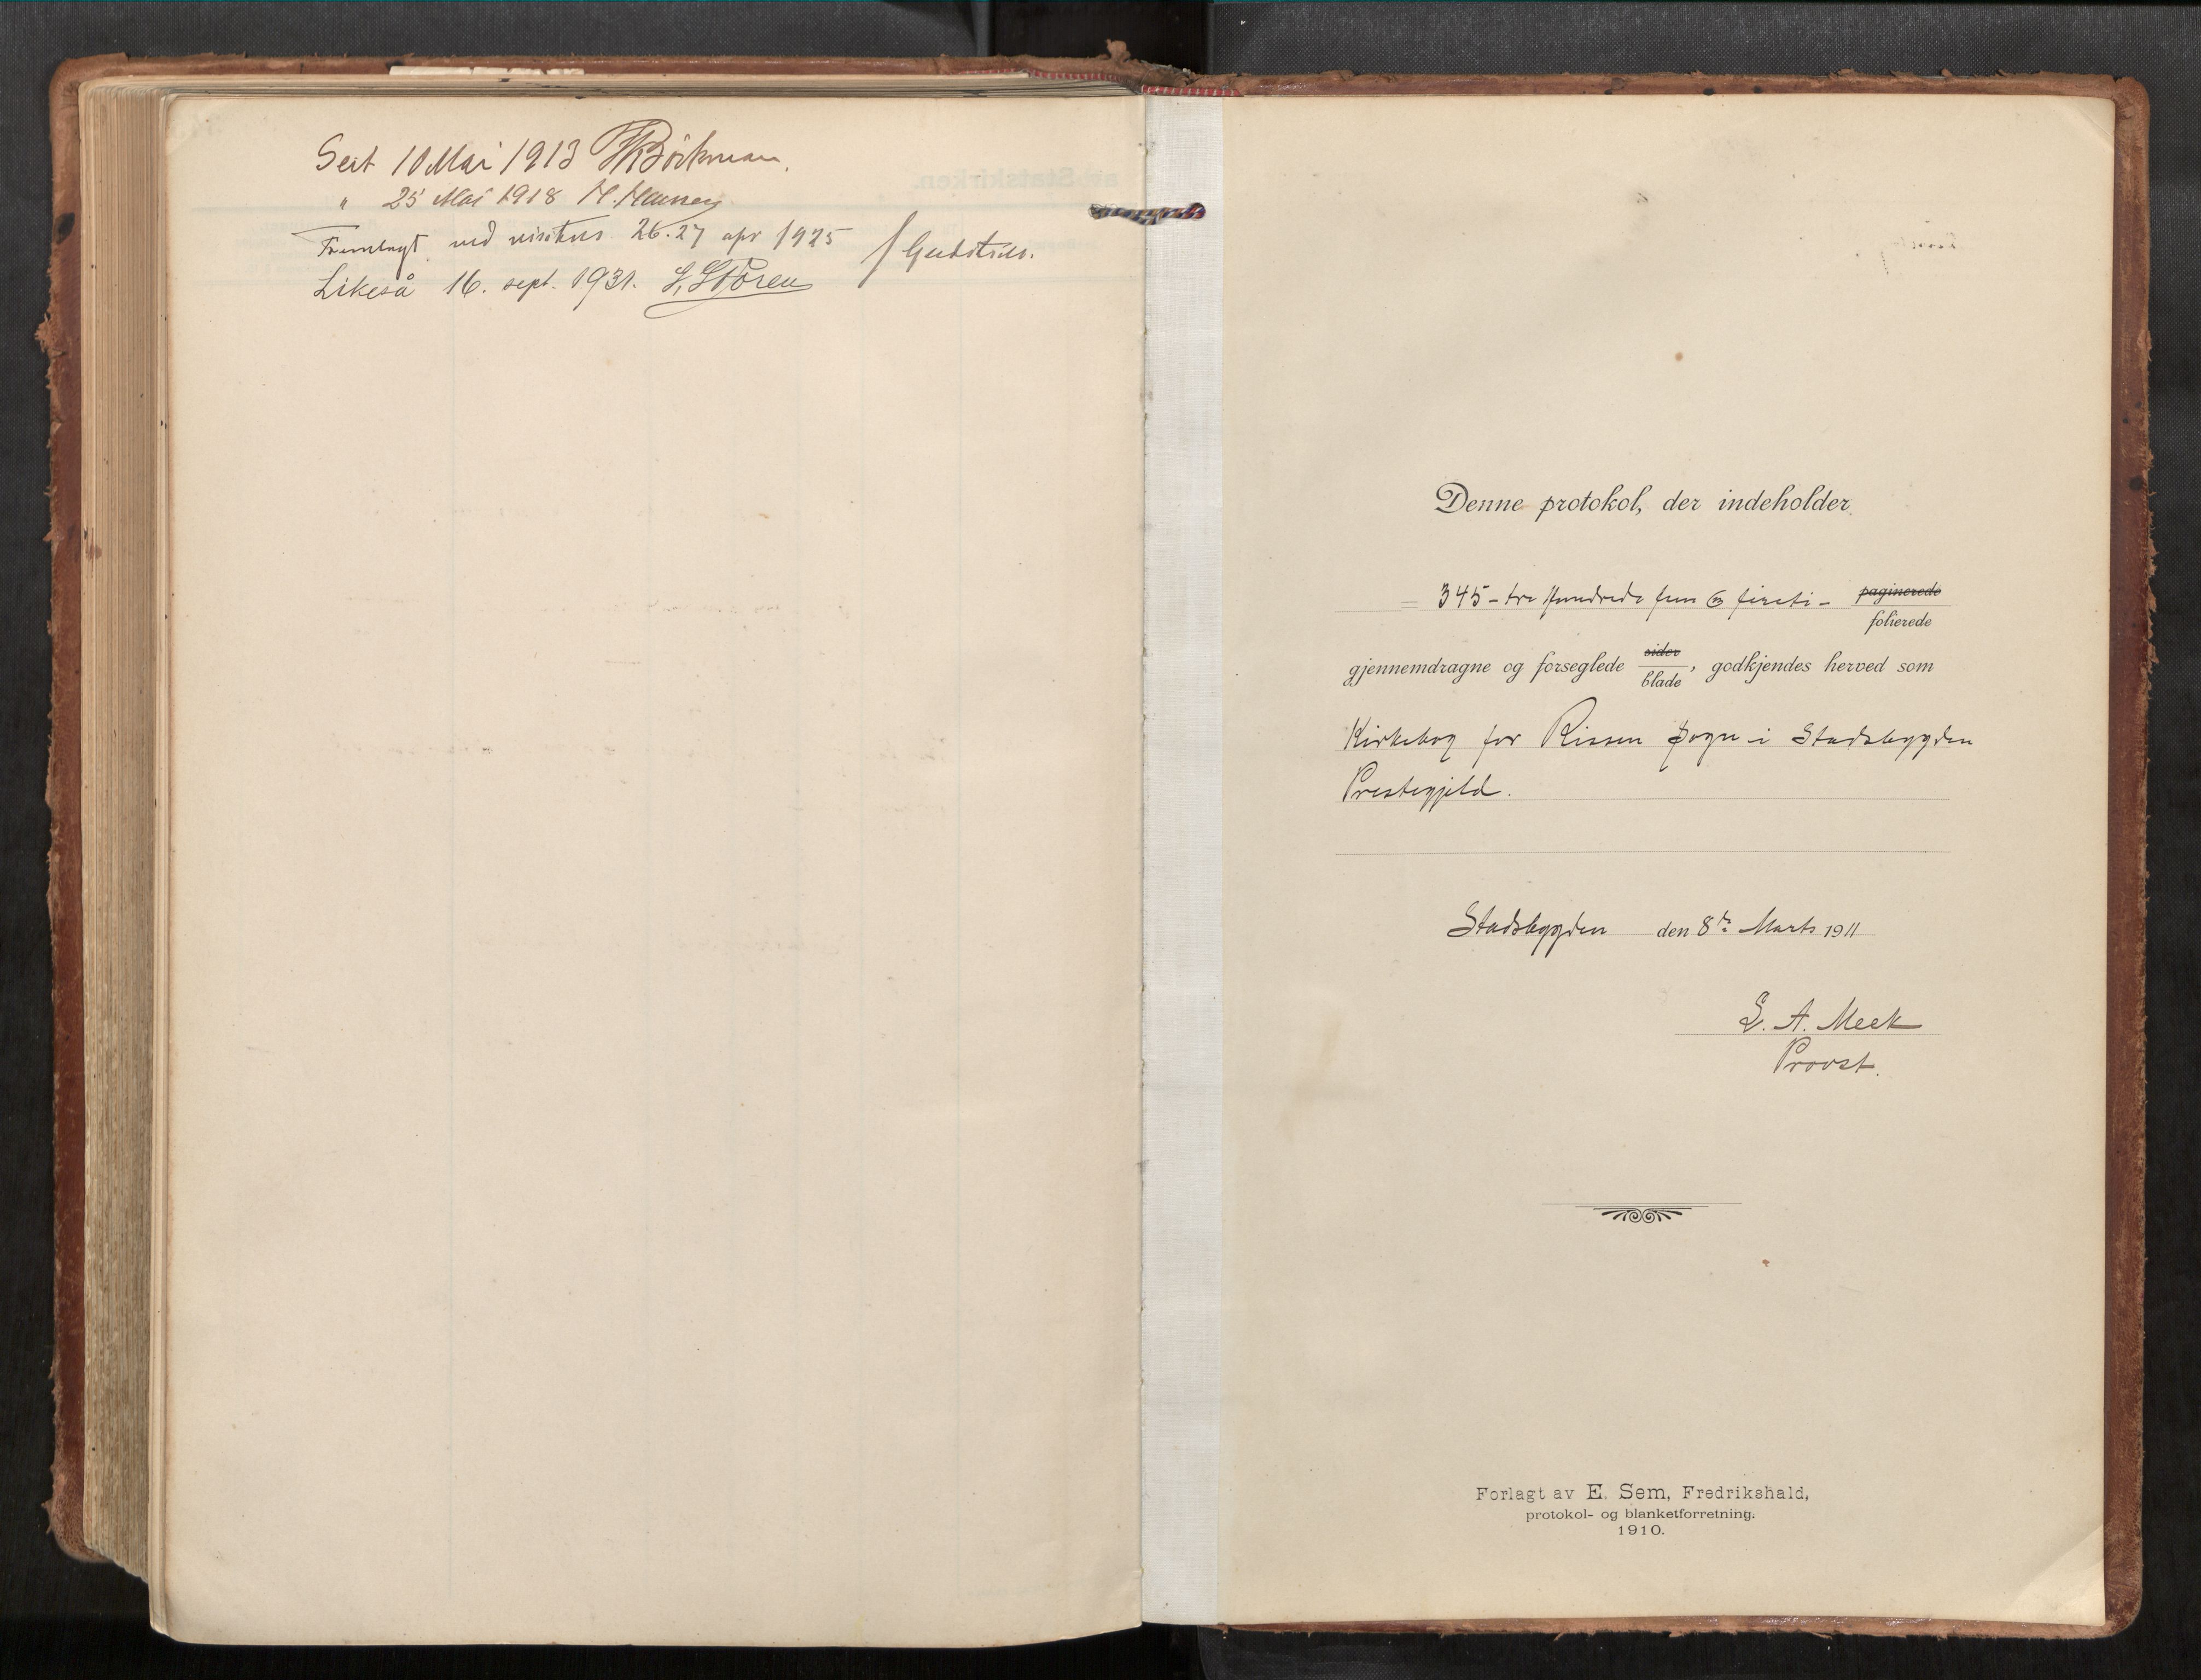 Seet 10 Mai 1913 Böckman.
" 25 Mai 1918 H. Hansen
Fremlagt ved visitas 26.27 apr 1925
Likeså 16. sept. 1931. S. Støren
Denne protokol, der indeholder
= 345 - tre hundrede fem & fireti - paginerede
folierede
gjennemdragne og forseglede sider
blade, godkjendes herved som
Kirkebog for Rissen Sogn i Stadsbygden
Prestegjeld.
Stadsbygden den 8de Marts 1911
L. A. Meek
Provst.
Forlagt av E. Sem, Fredrikshald,
protokol- og blanketforretning.
1910.